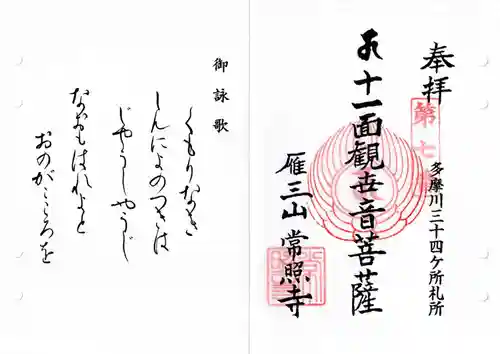 奉拝
第七
多摩川三十四ケ所札所
十一面観世音菩薩
雁三山 常照寺
御詠歌
くもりなき
しんによのつきは
じやうしやうじ
なおもはれよと
おのがこころを